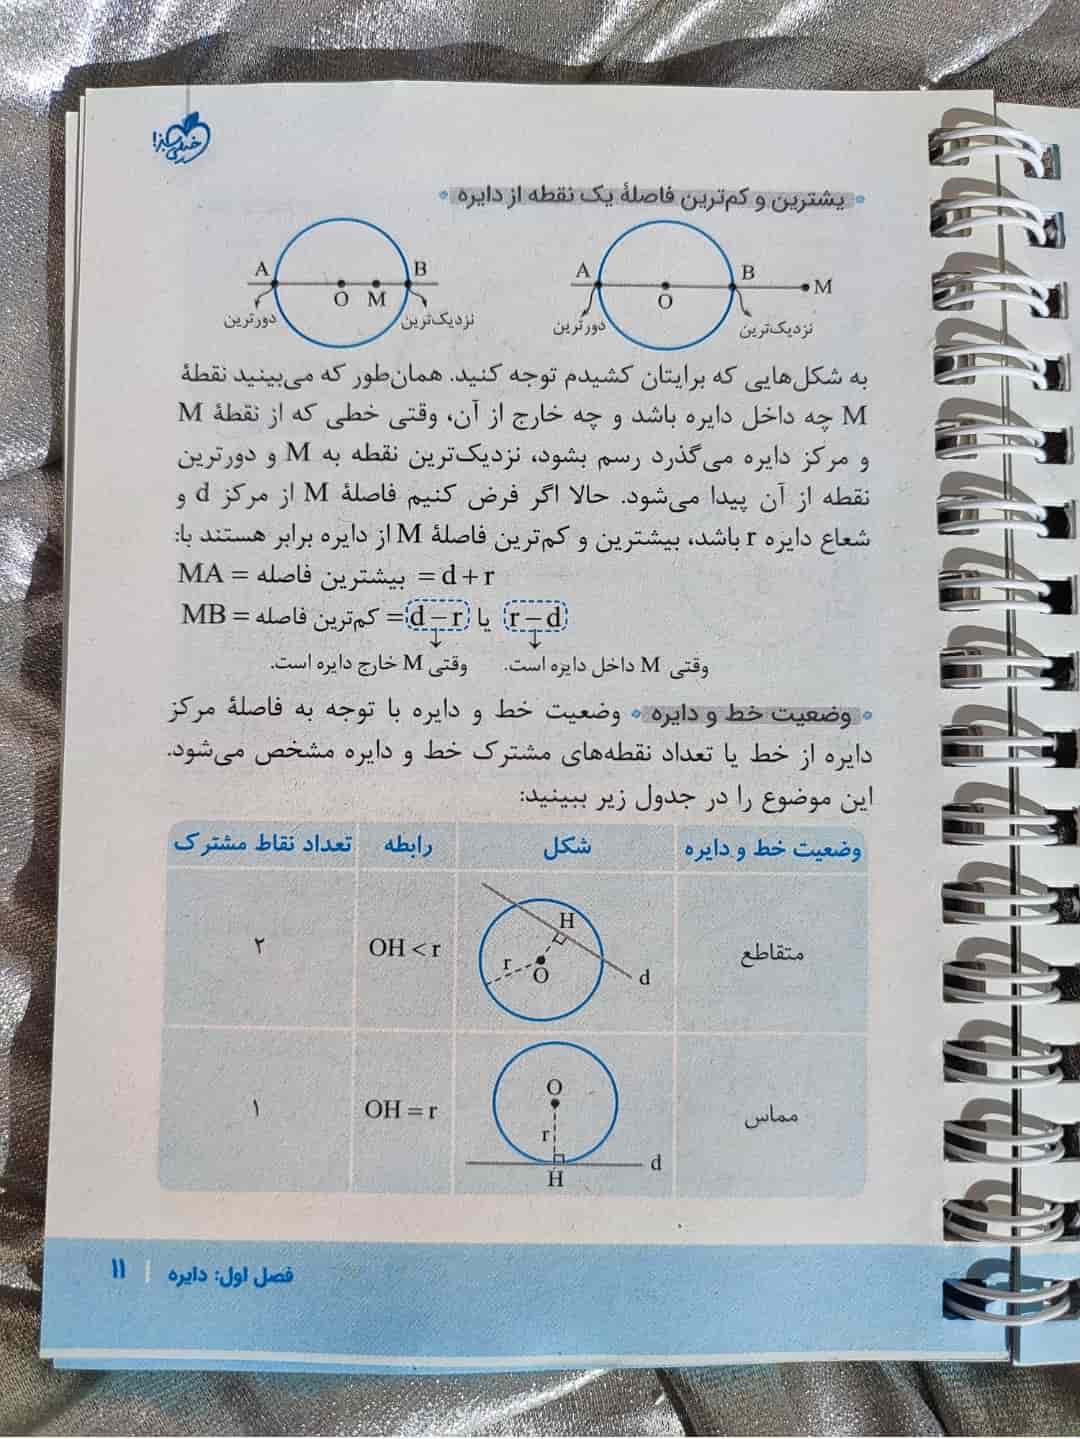 خیلی سبز!
یشترین و کم‌ترین فاصلهٔ یک نقطه از دایره
A O B M
دورترین نزدیک‌ترین
A O M B
دورترین نزدیک‌ترین
به شکل‌هایی که برایتان کشیدم توجه کنید. همان‌طور که می‌بینید نقطهٔ
M چه داخل دایره باشد و چه خارج از آن، وقتی خطی که از نقطهٔ M
و مرکز دایره می‌گذرد رسم بشود، نزدیک‌ترین نقطه به M و دورترین
نقطه از آن پیدا می‌شود. حالا اگر فرض کنیم فاصلهٔ M از مرکز d و
شعاع دایره r باشد، بیشترین و کم‌ترین فاصلهٔ M از دایره برابر هستند با:
MA = بیشترین فاصله = d+r
MB = کم‌ترین فاصله = d−r یا r−d
وقتی M خارج دایره است. وقتی M داخل دایره است.
وضعیت خط و دایره وضعیت خط و دایره با توجه به فاصلهٔ مرکز
دایره از خط یا تعداد نقطه‌های مشترک خط و دایره مشخص می‌شود.
این موضوع را در جدول زیر ببینید:
وضعیت خط و دایره شکل رابطه تعداد نقاط مشترک
متقاطع H r O d OH < r ۲
مماس O r H d OH = r ۱
فصل اول: دایره | ۱۱